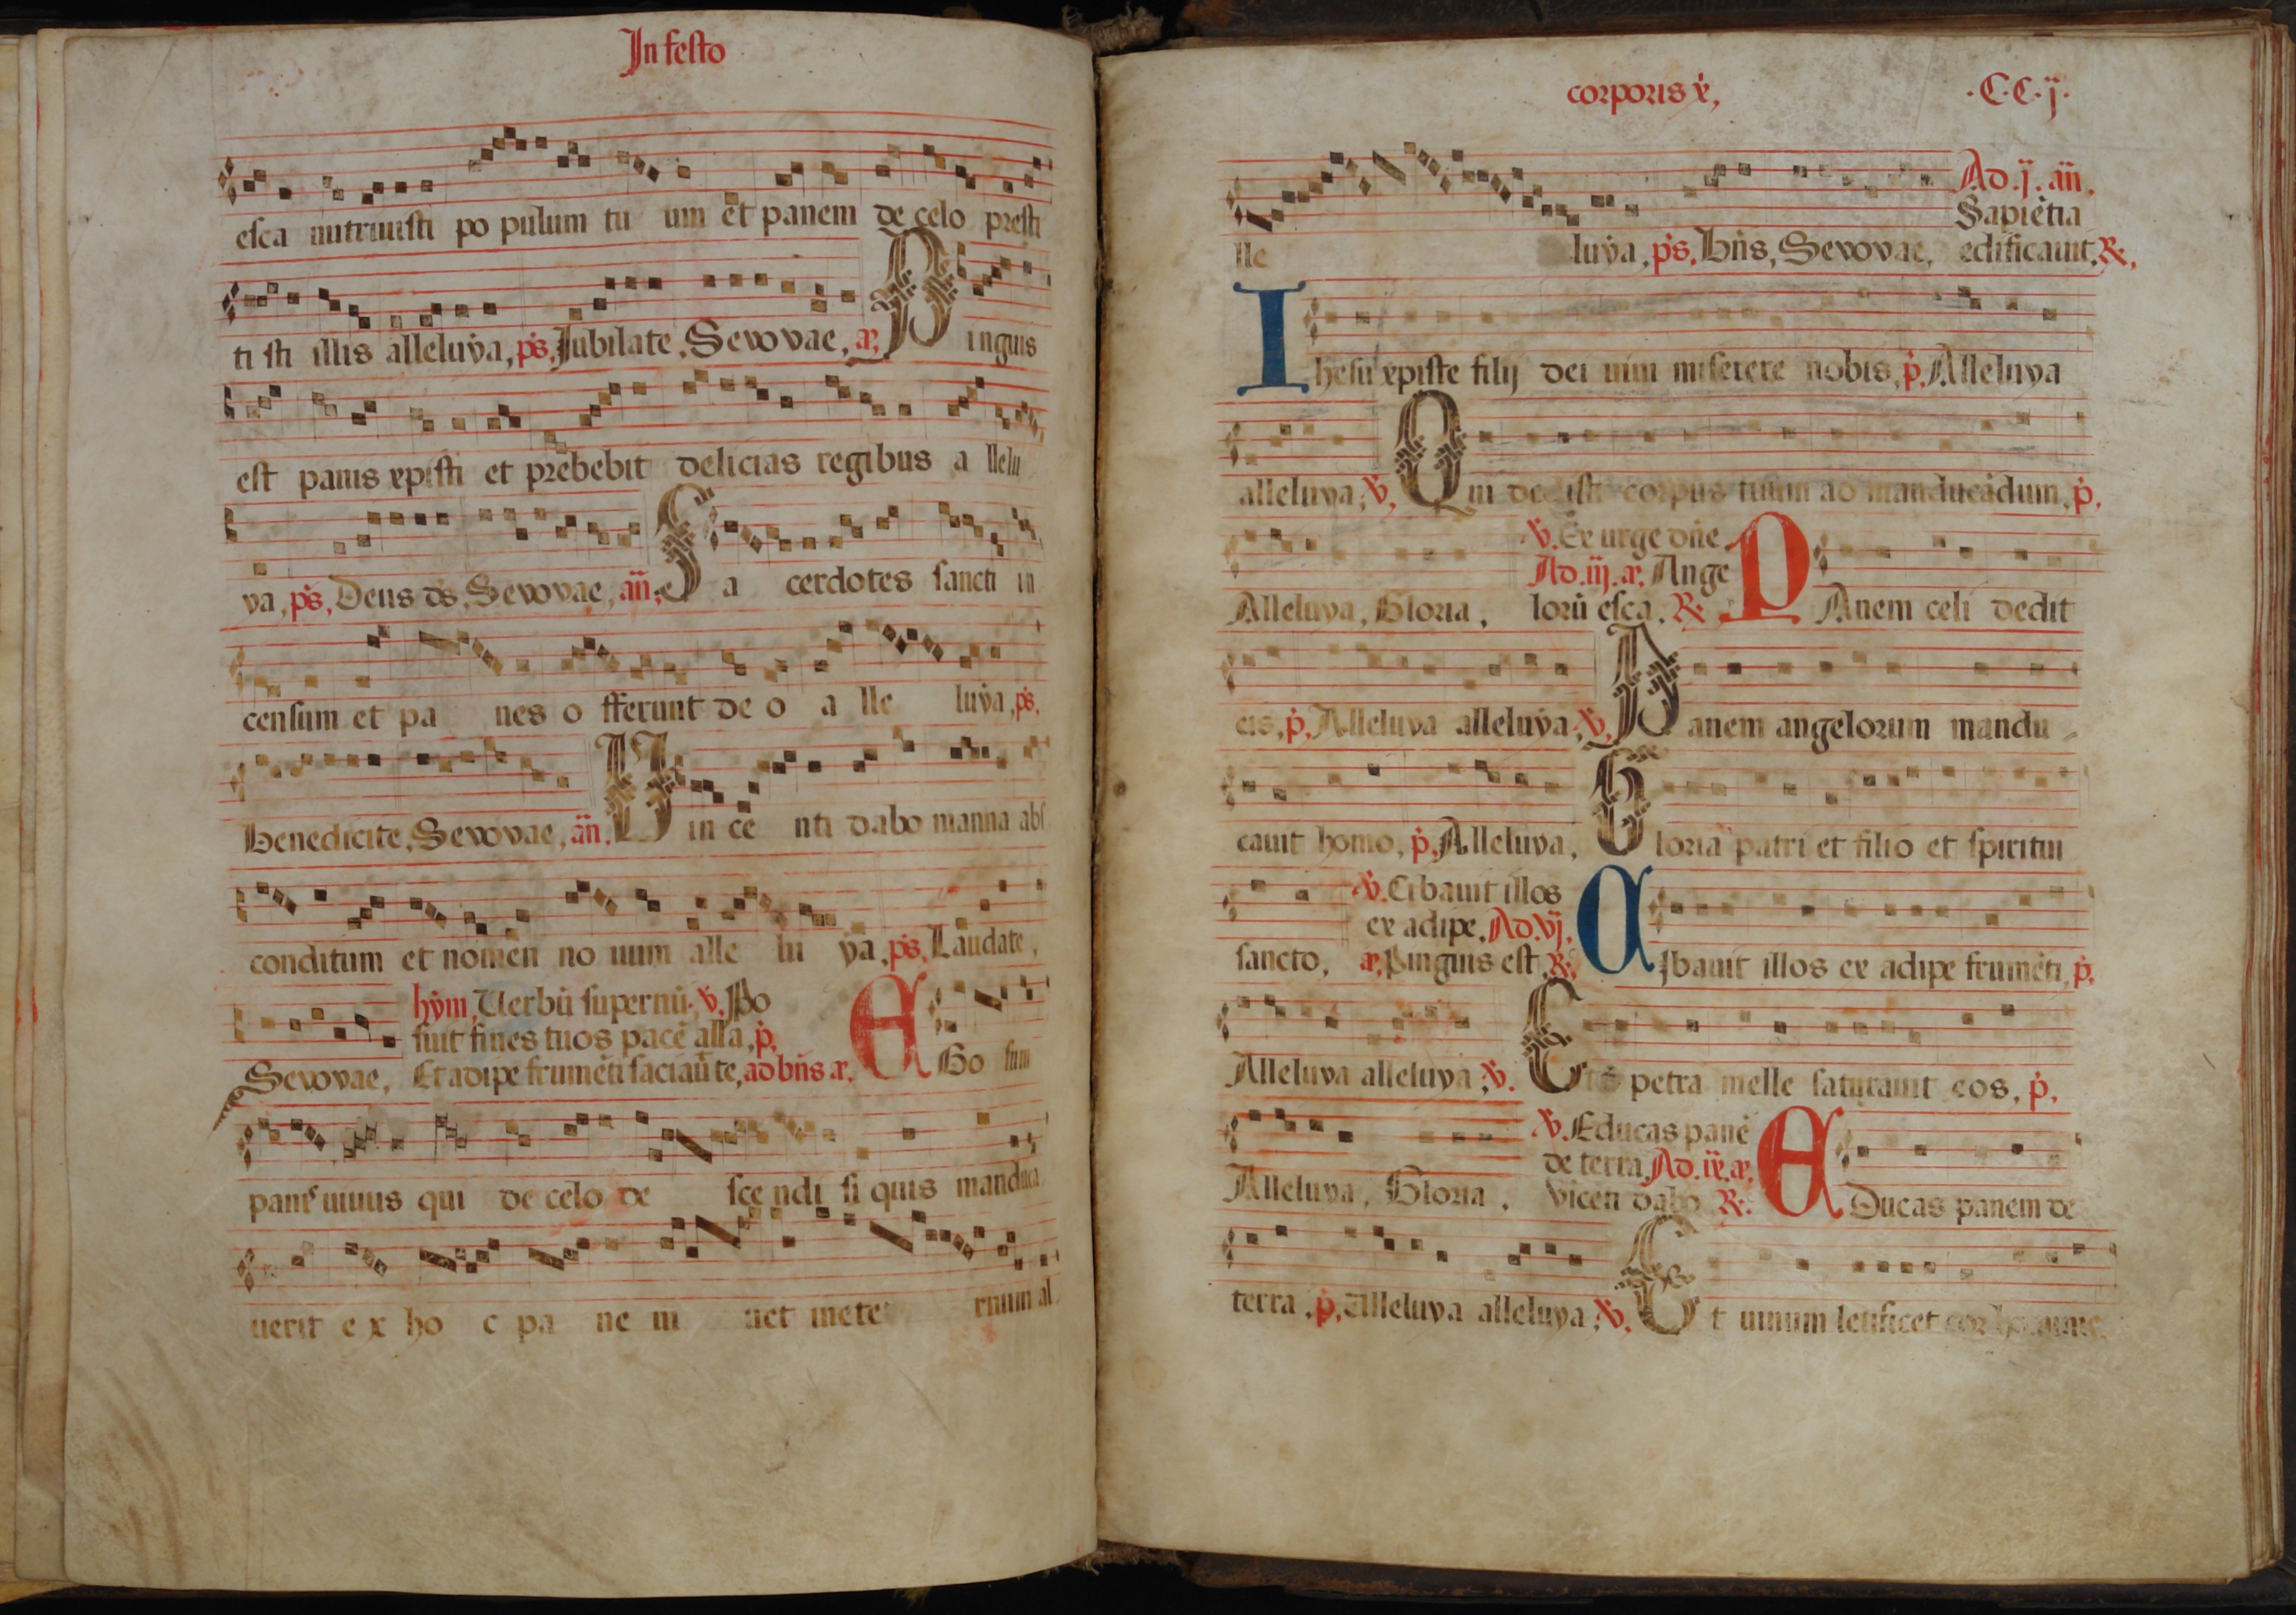 In festo
esca nutriuisti po pulum tu um et panem de celo presti
ti sti illis alleluÿa, ps, Jubilate, Seuouae, añ, Pinguis
est panis xpisti et prebebit delicias regibus a llelu
ya, ps, Deus ds, Seuouae, añ, Sa cerdotes sancti in
censum et pa nes o fferunt de o a lle luÿa, ps,
Benedicite, Seuouae, añ, Uin ce nti dabo manna abs
conditum et nomen no uum alle lu ÿa, ps, Laudate,
hym, Uerbū supernū, v, Po
suit fines tuos pacē alla, p,
Seuouae, Et adipe frumēti saciaūte, ad bñs añ, EGo sum
panis uiuus qui de celo de sce ndi si quis manduca
uerit e x ho c pa ne ui uet in ete rnum al
corporis x̄, ·C·C·ij·
Ad .ij. añ,
Sapiētia
lle luÿa, ps, Bñs, Seuouae, edificauit, R,
Ihesu xpiste filij dei uiui miserere nobis, p, Alleluya
alleluya, v, Qui dedisti corpus tuum ad manducādum, p,
v, Exurge dñe
Ad .iij. añ, Ange
Alleluya, Gloria, lorū esca, R, PAnem celi dedit
eis, p, Alleluya alleluÿa, v, Panem angelorum mandu
cauit homo, p, Alleluya, Gloria patri et filio et spiritui
v, Cibauit illos
ex adipe, Ad .vj.
sancto, añ, Pinguis est, R, CIbauit illos ex adipe frumēti, p,
Alleluya alleluya, v, Et de petra melle saturauit eos, p,
v, Educas panē
de terra, Ad .ix. añ,
Alleluya, Gloria, Vicēti dabo R, EDucas panem de
terra, p, Alleluya alleluya, v, Et uinum letificet cor